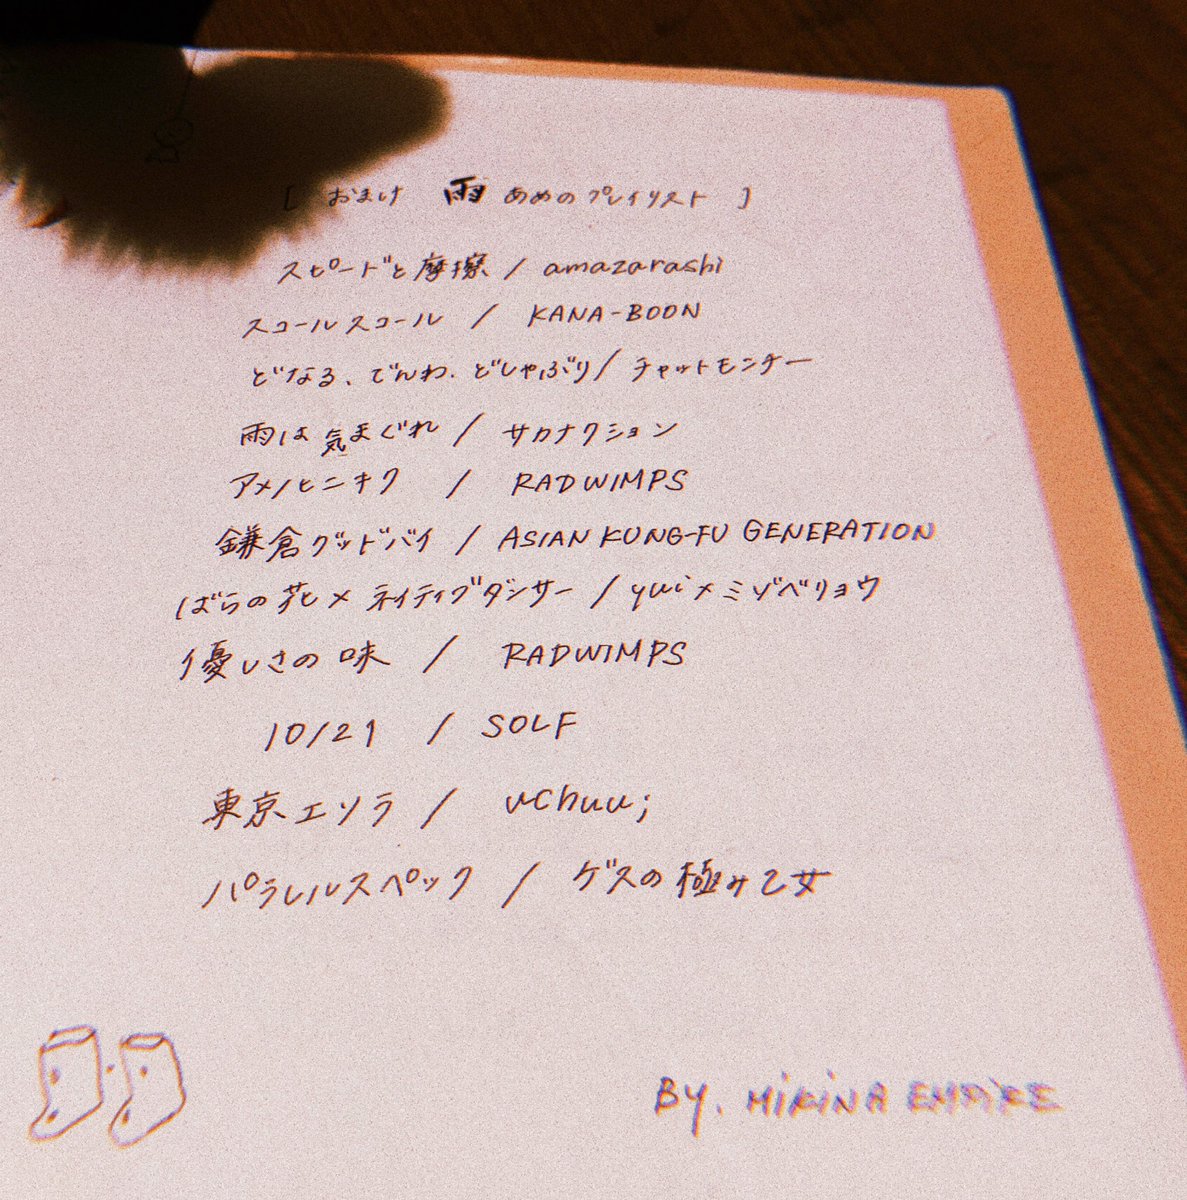 [ おまけ 雨 あめのプレイリスト ]
スピードと摩擦 / amazarashi
スコールスコール / KANA-BOON
どなる、でんわ、どしゃぶり / チャットモンチー
雨は気まぐれ / サカナクション
アメノヒニキク / RADWIMPS
鎌倉グッドバイ / ASIAN KUNG-FU GENERATION
ばらの花×ネイティブダンサー / yui×ミゾベリョウ
優しさの味 / RADWIMPS
10/21 / SOLF
東京エソラ / uchuu;
パラレルスペック / ゲスの極み乙女
BY. MIKINA EMPIRE